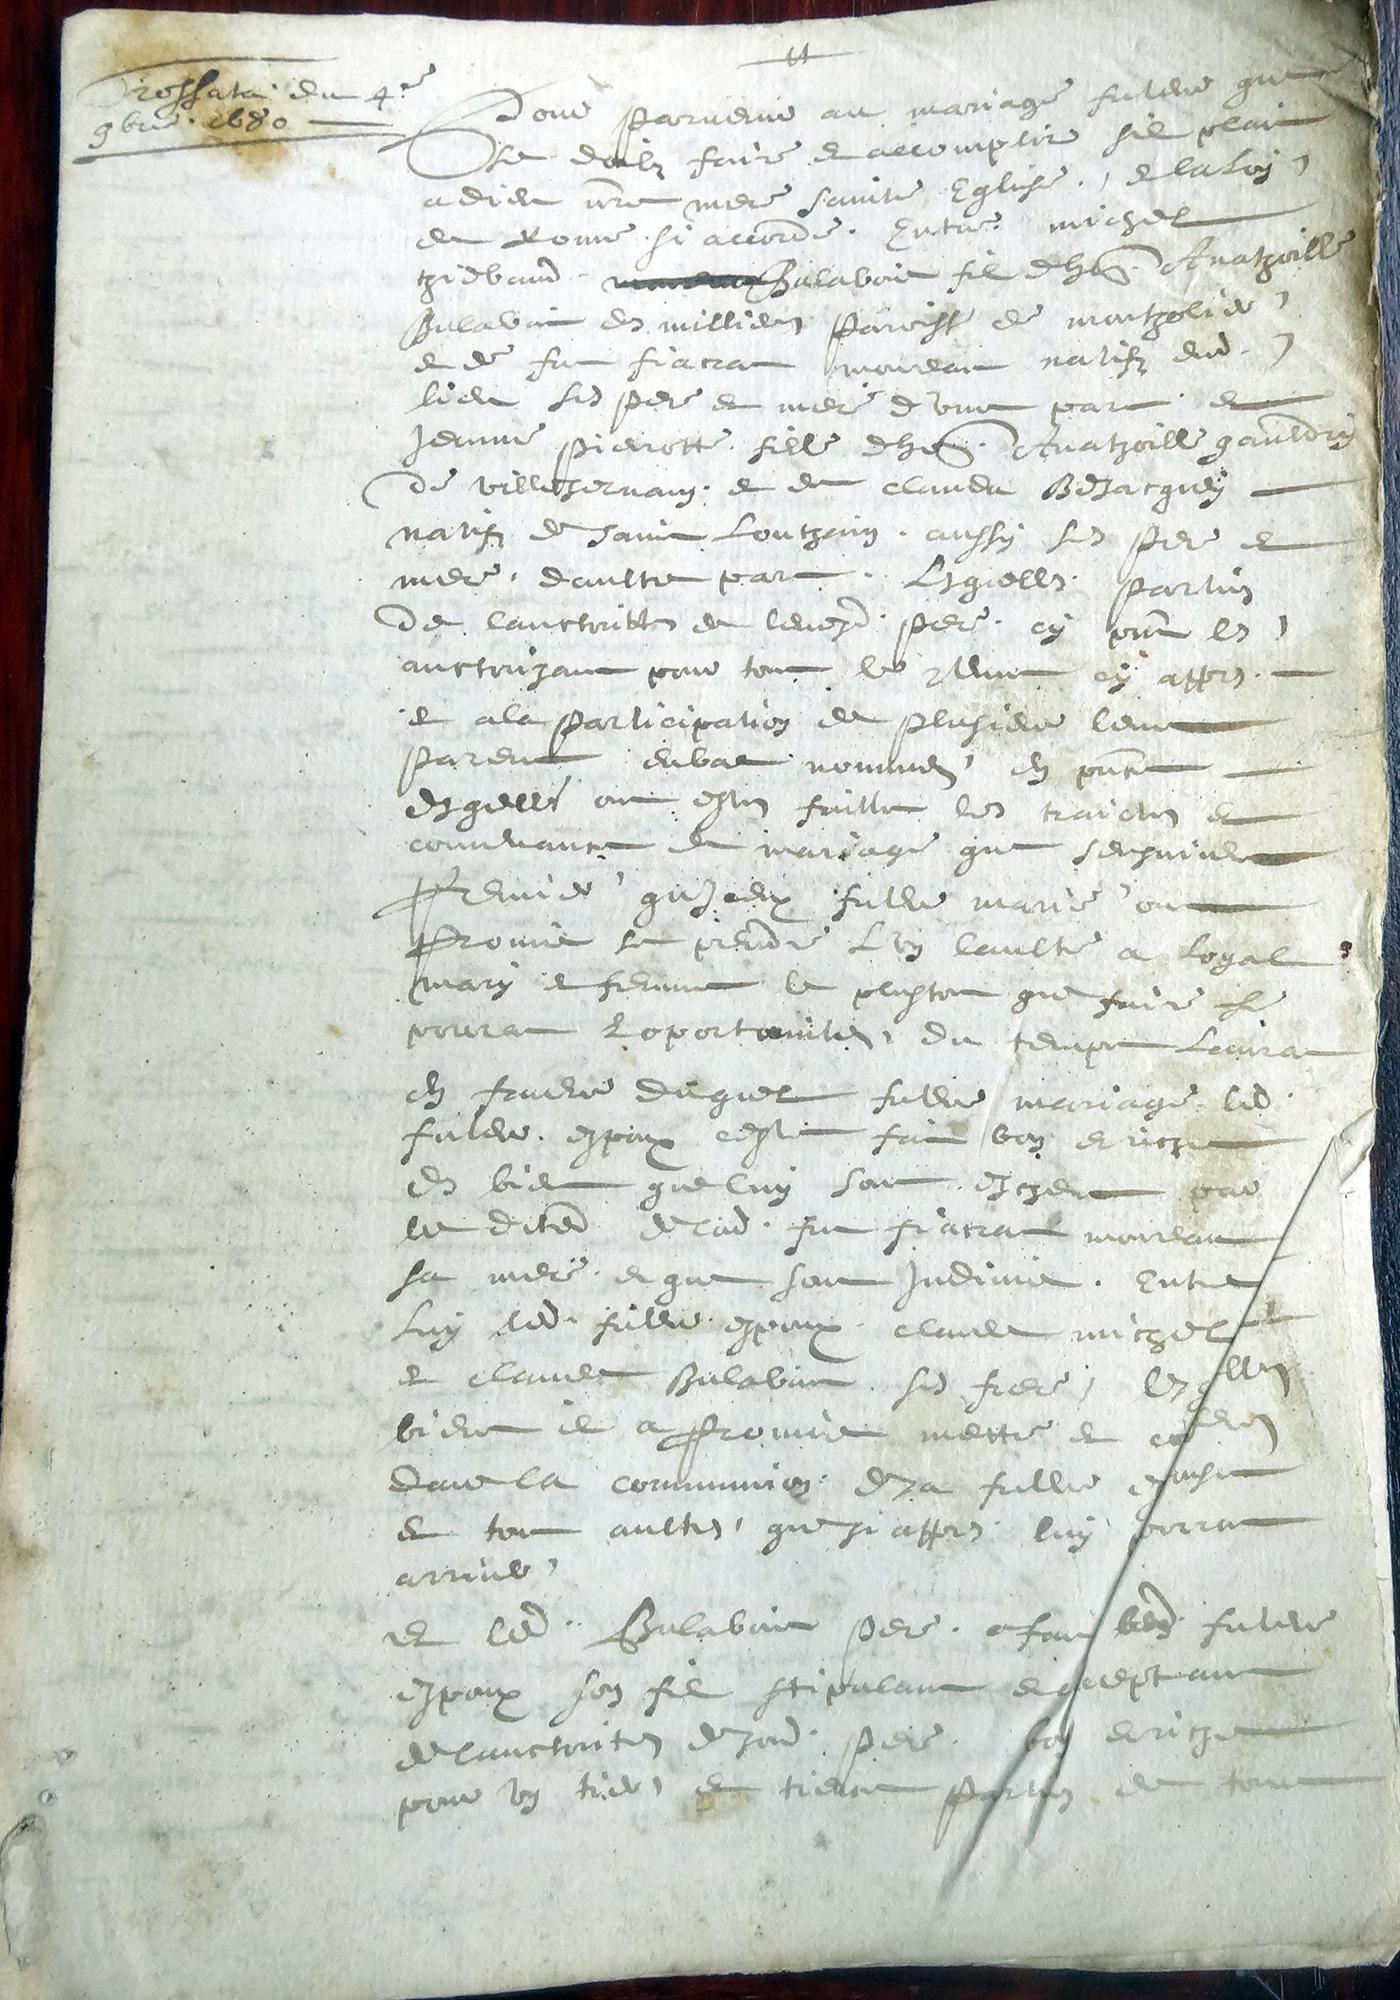 Grossata du 4e
9bre 1680
Pour parvenir au mariage futur que
se doibz faire et accomplir sil plait
a dieu nre mere sainte Eglise, et la loy
de Rome si accorde. Entre michel
thiebaud Bulaboin fil dhon. Anathoille
Bulaboin de millien paroisse de montholier
et de fut fiacran moureau natifz dud.
lieu ses pere et mere d'une part et
Jeanne pierrotte fille dhon. Anathoille
de villersernain et de claude Bejacquey
natifz de saint Louthain aussy ses pere et
mere, daultre part. Lesquelles parties
de lauctorittez de leursd. pere cy pnt les
auctorizant pour tout le contenu cy appres
et a la participation de plusieurs leurs
parent enbas nommez en pnce
desquelz ont estez faittes les traictez et
convenance de mariage que sensuivent
premier quiceux futur marie ont
promis se prendre l'un laultre a loyal
mary et femme le plustot que faire se
pourat et oportunitez du temps leurat
en faveur duquel futur mariage led.
futur espoux cestet fait bon et riche
des biens que luy sont escheut par
le decred de lad. fut fiacran moureau
sa mere et que sont Indivis. Entre
luy led. futur espoux claude michel
et claude Bulaboin ses frere, lesquelles
biens il a promis mettre et
dans la communion de sa future espouse
et tout aultres que si appres luy porrat
arriver
et led. Bulaboin pere a fait led. futur
espoux son fil stipulant et aceptant
de lauctoritez de sond. pere bon et riche
pour un tier et tierce partie de tout